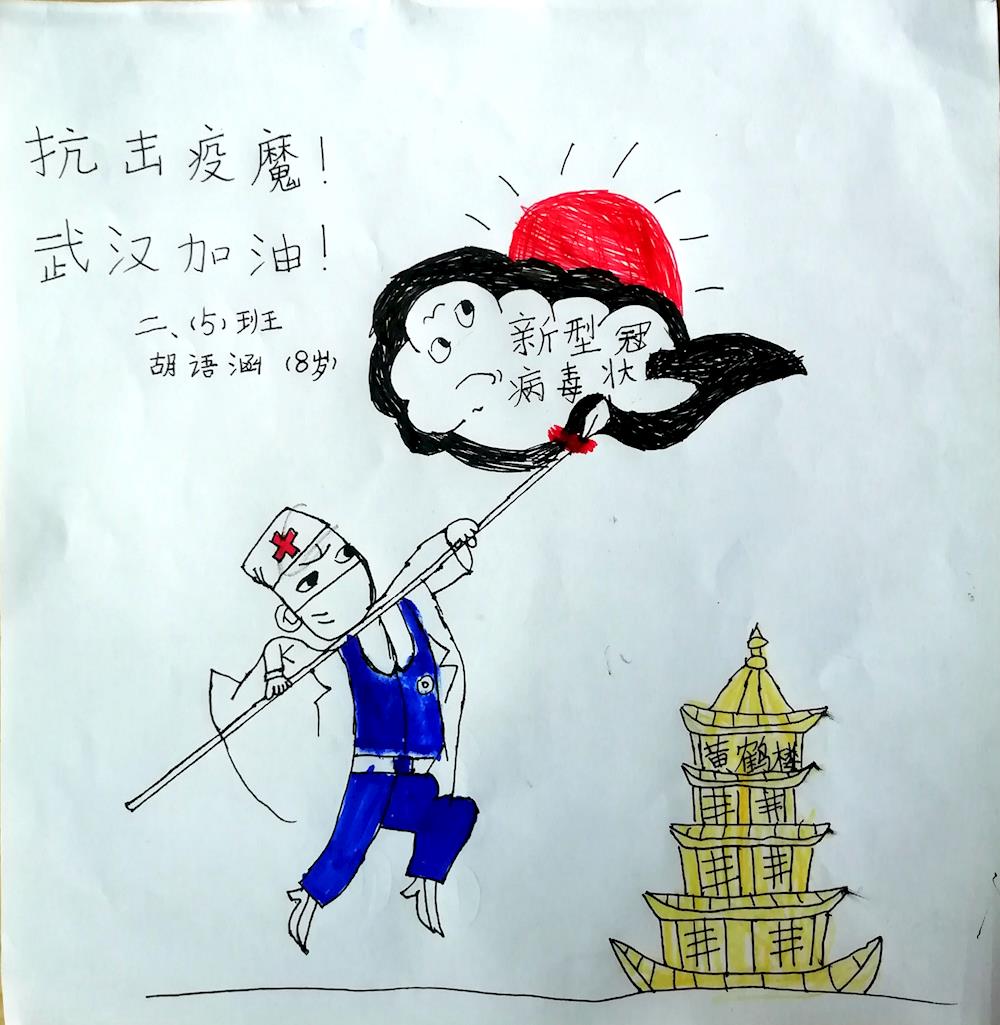 抗击疫魔!
武汉加油!
二、(5)班
胡语涵(8岁)
新型冠
病毒状
黄鹤楼